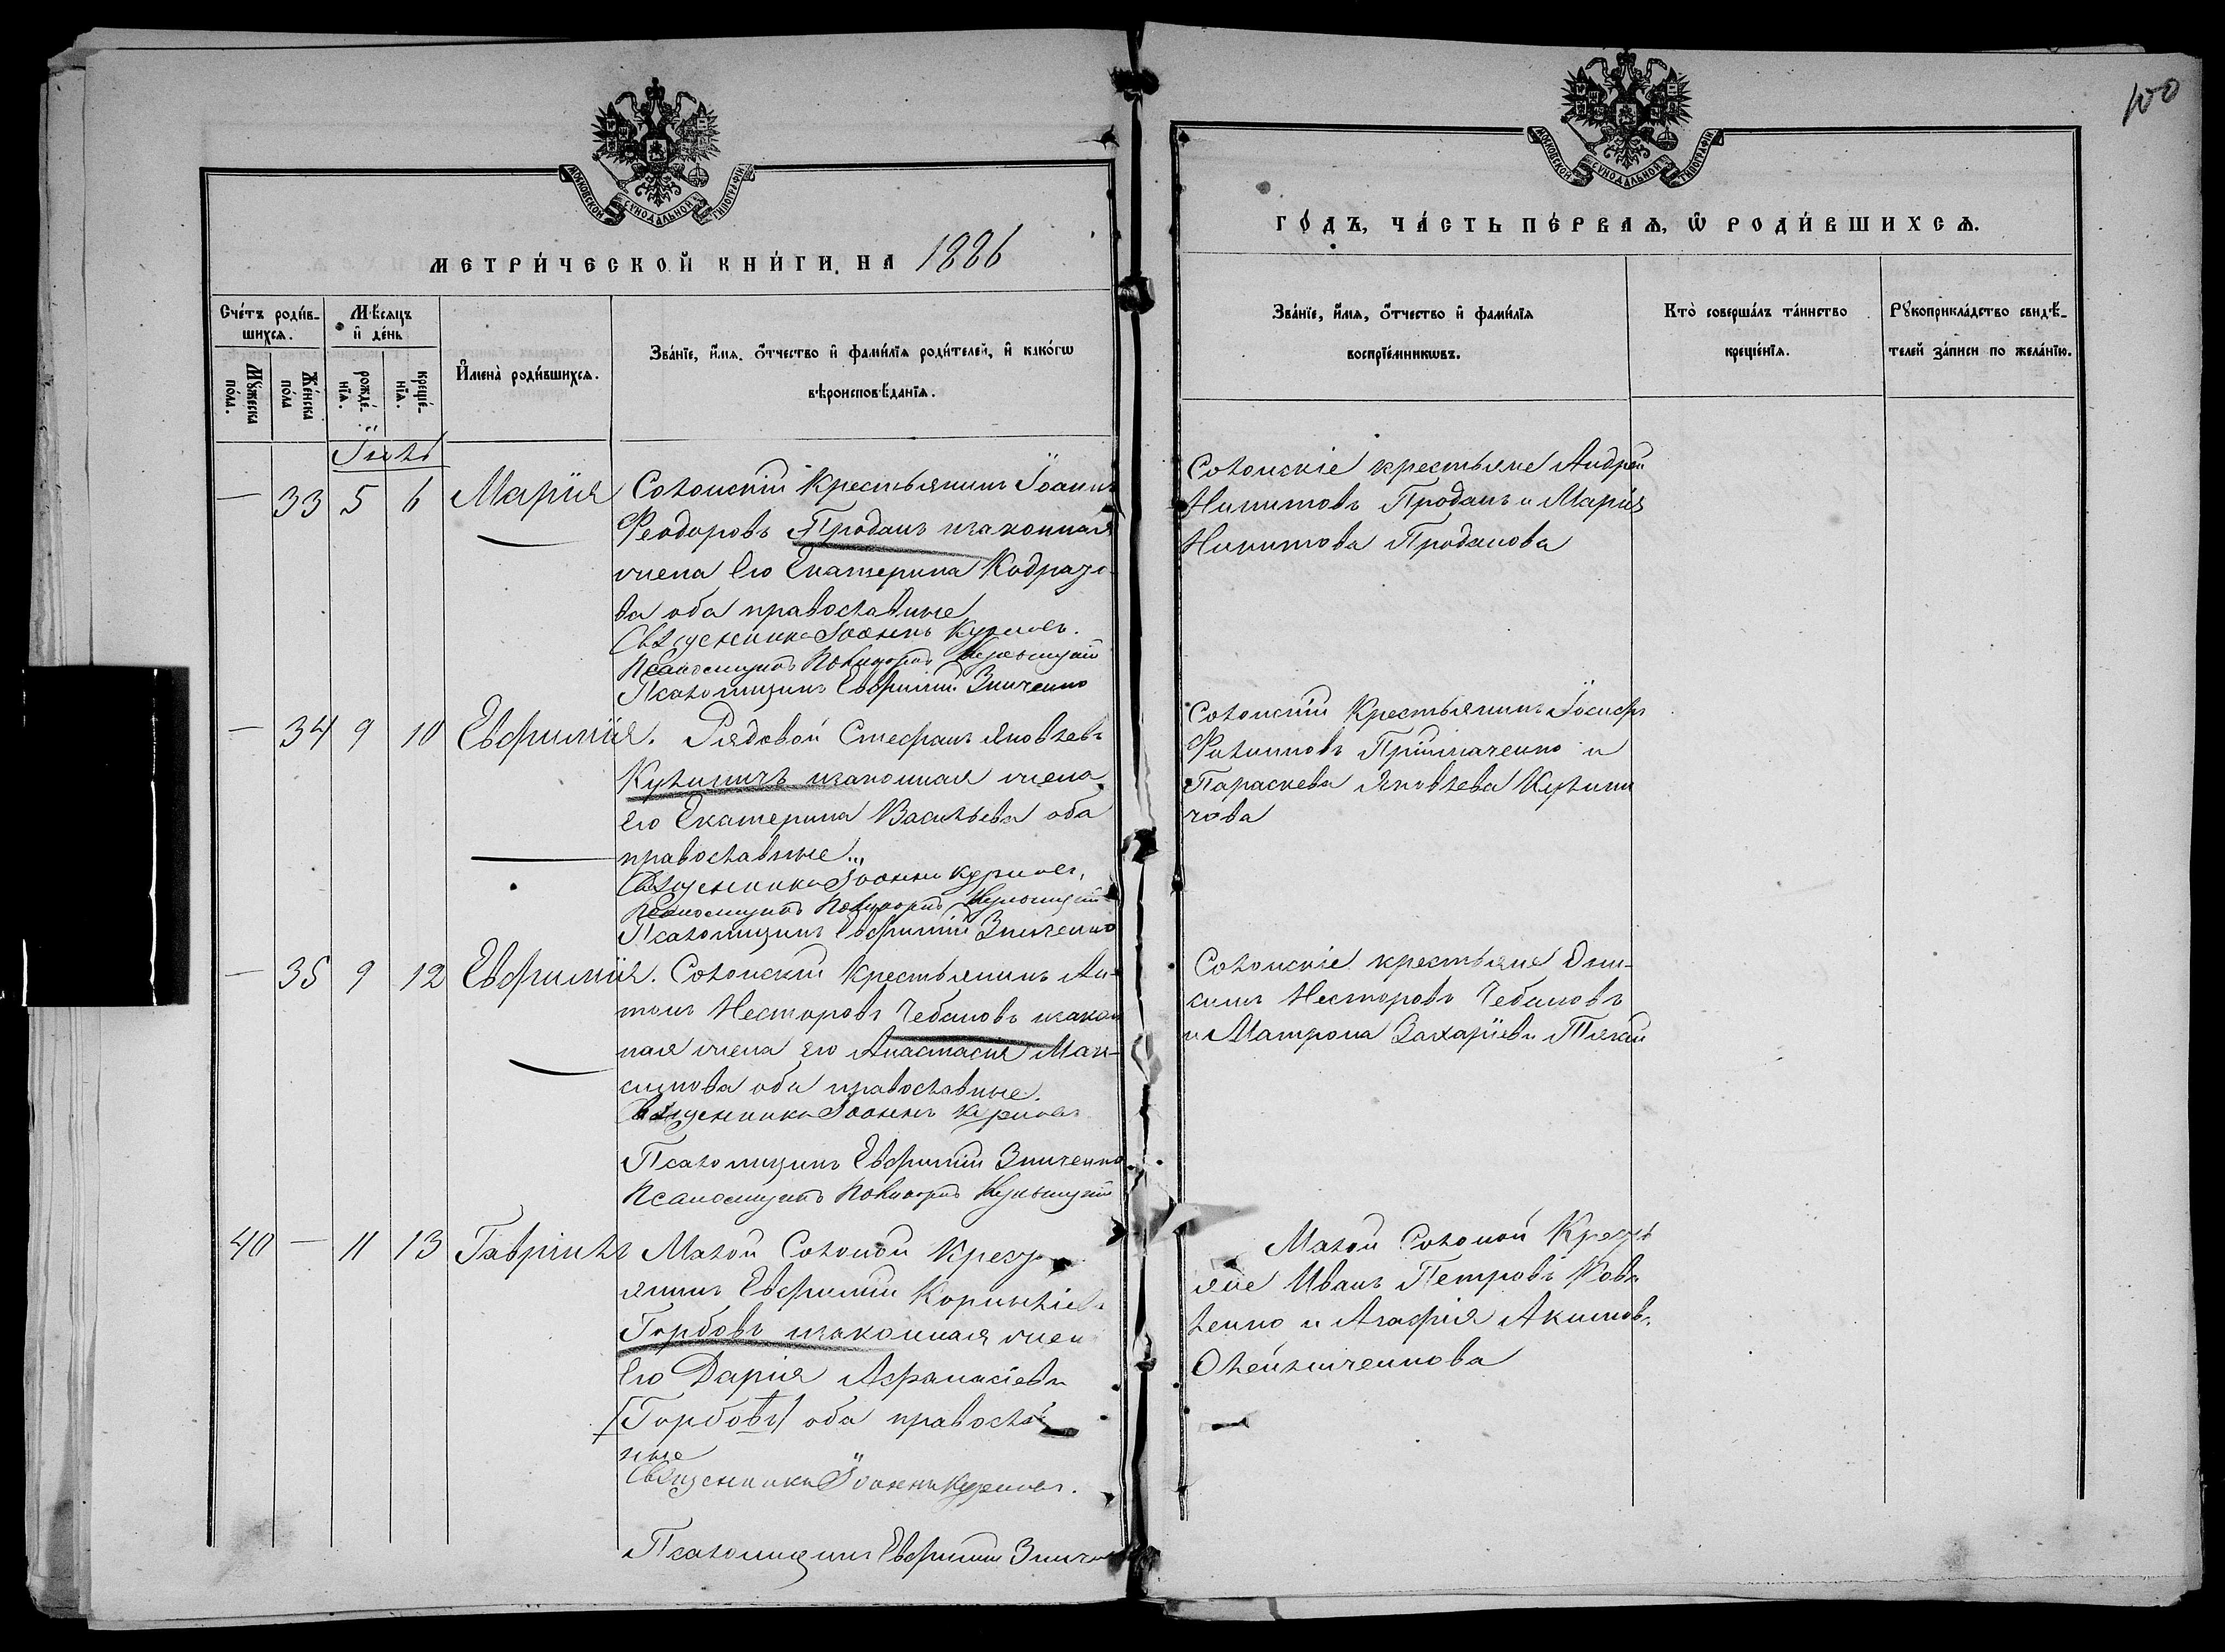 100
МОСКОВСКОЙ СУНОДАЛЬНОЙ ТИПОГРАФІИ
МЕТРИ́ЧЕСКОЙ КНИ́ГИ, НА 1886
Сче́тъ роди́в-
шихсѧ.
Мѣ́сяцъ
и де́нь
Мꙋ́жеска
по́ла.
Же́нска
по́ла
рожде́-
нїѧ.
креще́-
нїѧ.
И҆мена̀ роди́вшихсѧ.
Зва́нїе, и҆́мѧ, ѻ҆́тчество и҆ фами́лїѧ роди́телей, и҆ како́гѡ
вѣроисповѣ́данїѧ.
Іюль
— 33 5 6 Марія
Солонскій крестьянинъ Іоаннъ
Феодоровъ Проданъ изаконная
жена его Екатерина Кодрато-
ва оба православные
Священникъ Іоаннъ
Псаломщикъ
Псаломщикъ Евфимій Зинченко
— 34 9 10 Евфимія.
Рядовой Стефанъ Яковлевъ
Кулиничъ изаконная жена
его Екатерина Васильева оба
православные
Священникъ Іоаннъ
Псаломщикъ
Псаломщикъ Евфимій Зинченко
— 35 9 12 Евфимія.
Солонскій крестьянинъ Ан-
тонъ Несторовъ Чебановъ изакон
ная жена его Анастасія Мак-
симова оба православные.
Священникъ Іоаннъ
Псаломщикъ Евфимій Зинченко
Псаломщикъ
40 — 11 13 Гавріилъ
Малой Солоной Крест
янинъ Евфимій Корниліев
Горбовъ изаконная жен
его Дарія Афанасіева
/Горбовъ/ оба правосла
ные
Священникъ Іоаннъ
Псаломщикъ Евфимій Зинч
МОСКОВСКОЙ СУНОДАЛЬНОЙ ТИПОГРАФІИ
ГО́ДЪ, ЧА́СТЬ ПЕ́РВАѦ, Ѡ҆ РОДИ́ВШИХСѦ.
Зва́нїе, и҆́мѧ, ѻ҆́тчество и҆ фами́лїѧ
воспрїе́мникѡвъ.
Кто̀ соверша́лъ та́инство
креще́нїѧ.
Рꙋкоприкла́дство свидѣ́-
телей за́писи по жела́нїю.
Солонскіе крестьяне Андрей
Никитовъ Проданъ и Марія
Никитова Проданова
Солонскій Крестьянинъ Іосифъ
Филиповъ Пріймаченко и
Параскева Яковлева Кулини
чова
Солонскіе крестьяне Они-
симъ Несторовъ Чебановъ
и Матрона Захаріева Тягай
Малой Солоной Крестьь
яне Иванъ Петровъ Кова
ленко и Агафія Акимов.
Олейниченкова